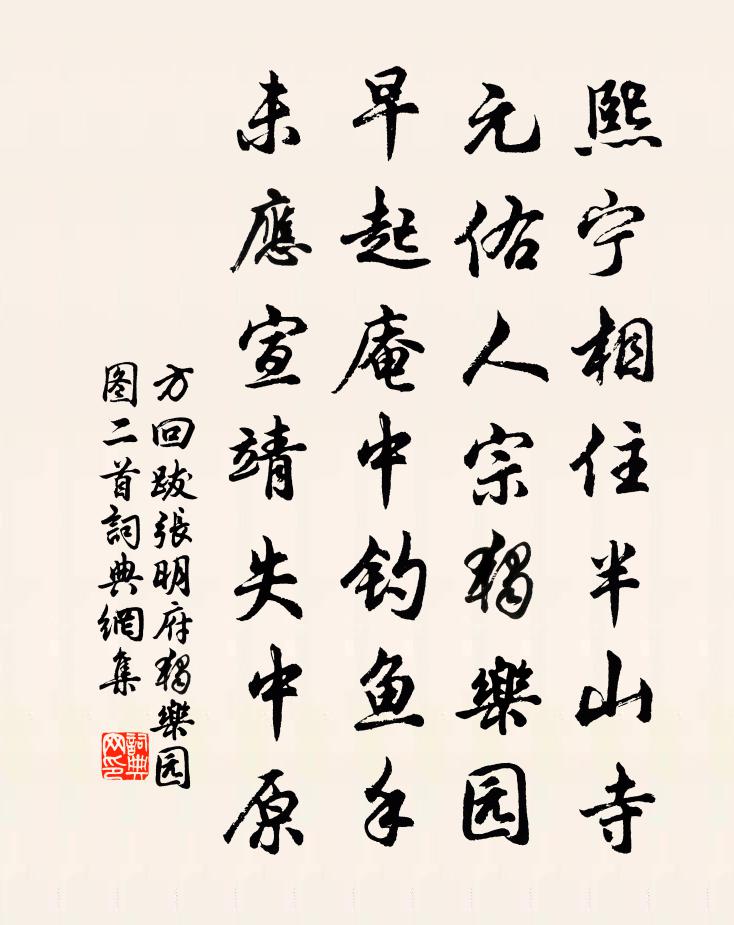 熙宁相住半山寺
元佑人宗獨樂园
早起庵中钓鱼手
未應宣靖失中原
方回跋張明府獨樂园
图二首詞典網集
詞典网印